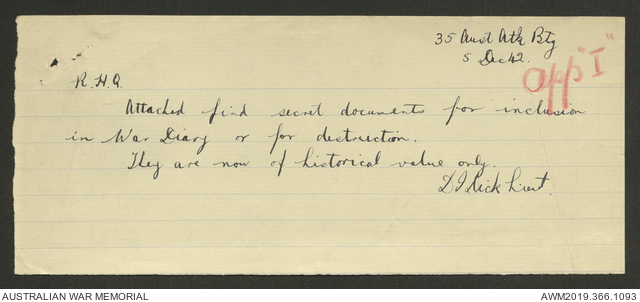 35 Aust Atk Bty
5 Dec 42.
app "I"
R.H.Q.
Attached find secret documents for inclusion
in War Diary or for destruction.
They are now of historical value only.
D I Dick Lieut.
AUSTRALIAN WAR MEMORIAL
AWM2019.366.1093